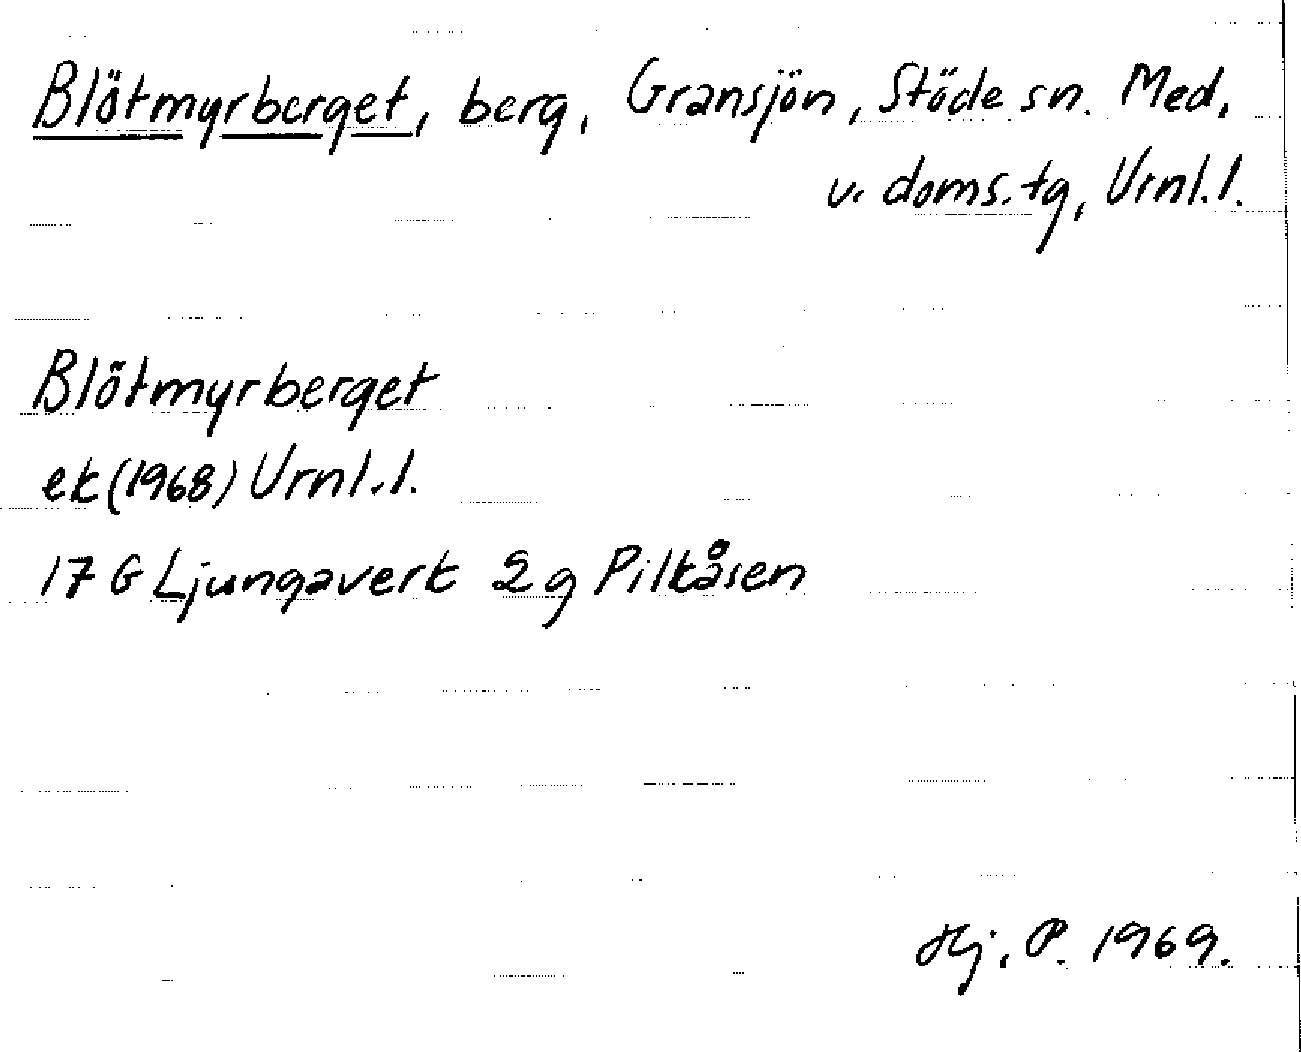 Blötmyrberget, berg, Gransjön, Stöde sn. Med.
v. doms.tg, Vrnl.l.
Blötmyrberget
ek (1968) Vrnl.l.
17 G Ljungaverk 2 g Pilkåsen
Hj. P. 1969.